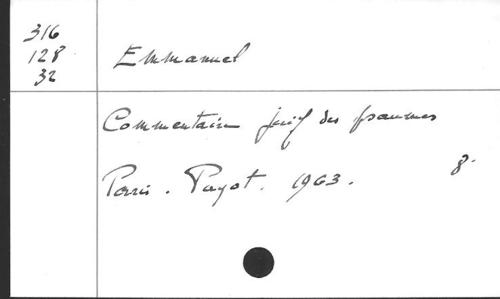 316
128
32
Emmanuel
Commentaire juif des psaumes
8.
Paris. Payot. 1963.